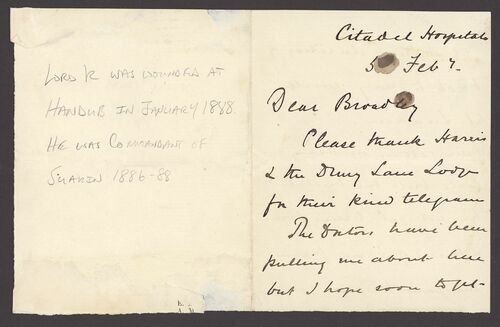 LORD K WAS WOUNDED AT
HANDUB IN JANUARY 1888.
HE WAS COMMANDANT OF
SUAKIN 1886-88
Citadel Hospital
5 Feb 7.
Dear Broadley
Please thank Harris
& the Drury Lane Lodge
for their kind telegram
The Doctors have been
pulling me about here
but I hope soon to get-